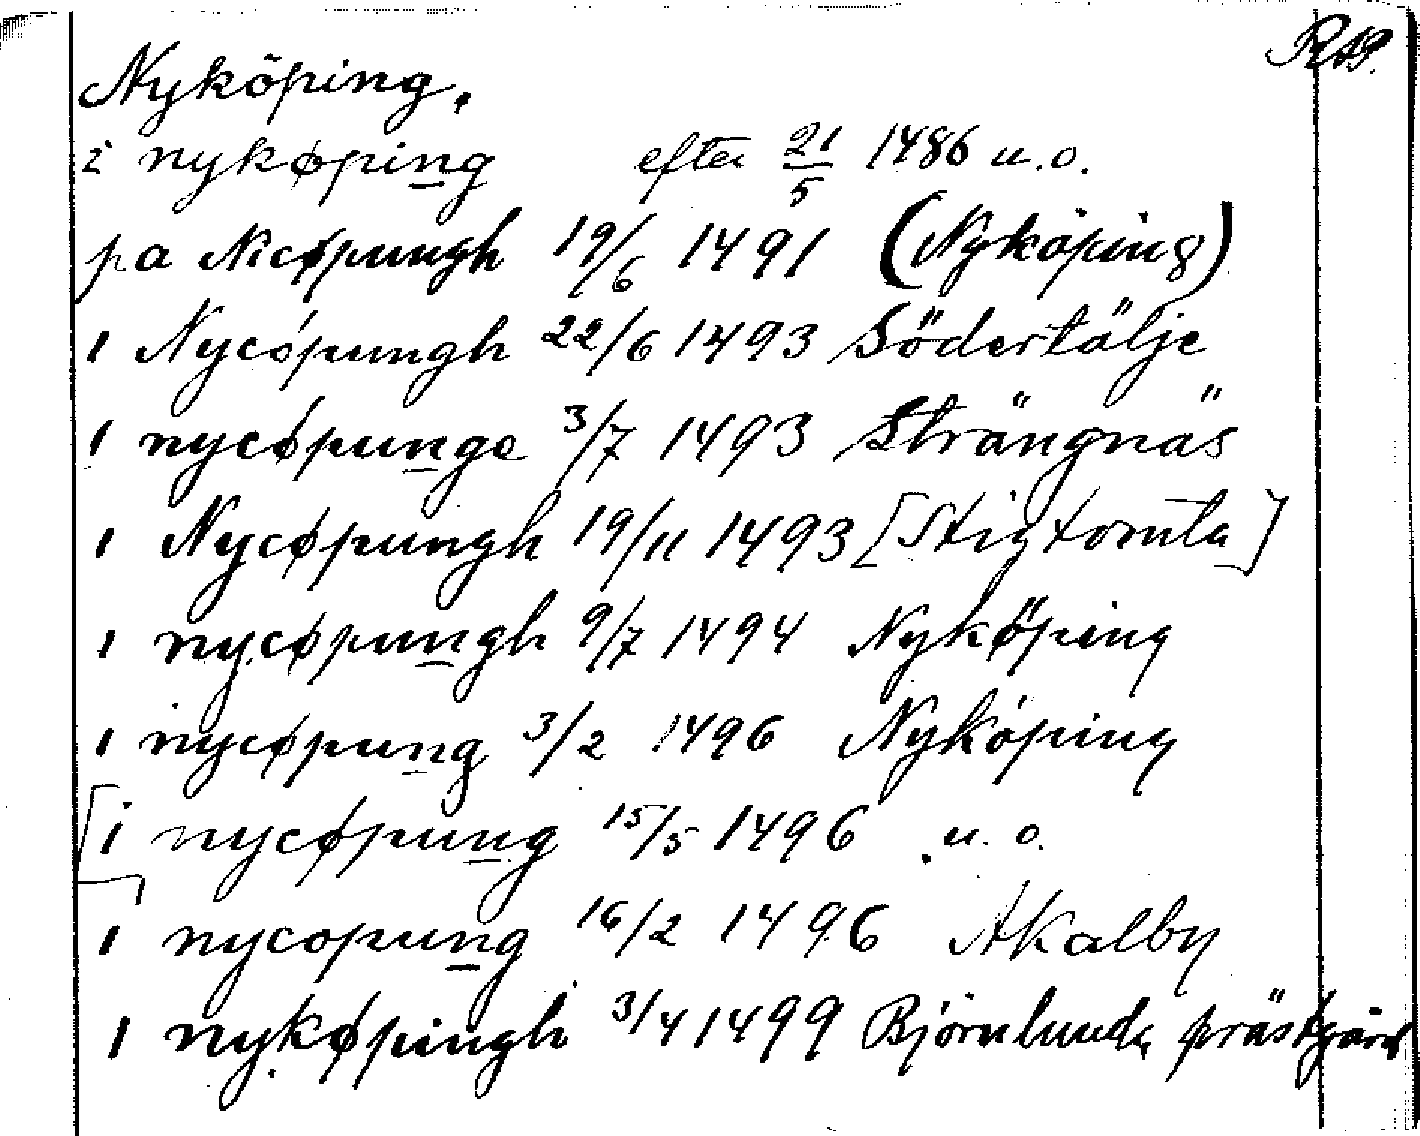 RAP.
Nyköping.
i nykøping efter 21/5 1486 u.o.
pa Nicøpungh 19/6 1491 (Nyköping)
i Nycópungh 22/6 1493 Södertälje
i nycøpunge 3/7 1493 Strängnäs
i Nycøpungh 19/11 1493 [Stigtomta]
i nycøpungh 9/7 1494 Nyköping
i nycøpung 3/2 1496 Nyköping
[i nycøpung 15/5 1496 u.o.
]
i nycopung 16/2 1496 Åkalby
i nykøpingh 3/4 1499 Björnlunda prästgård